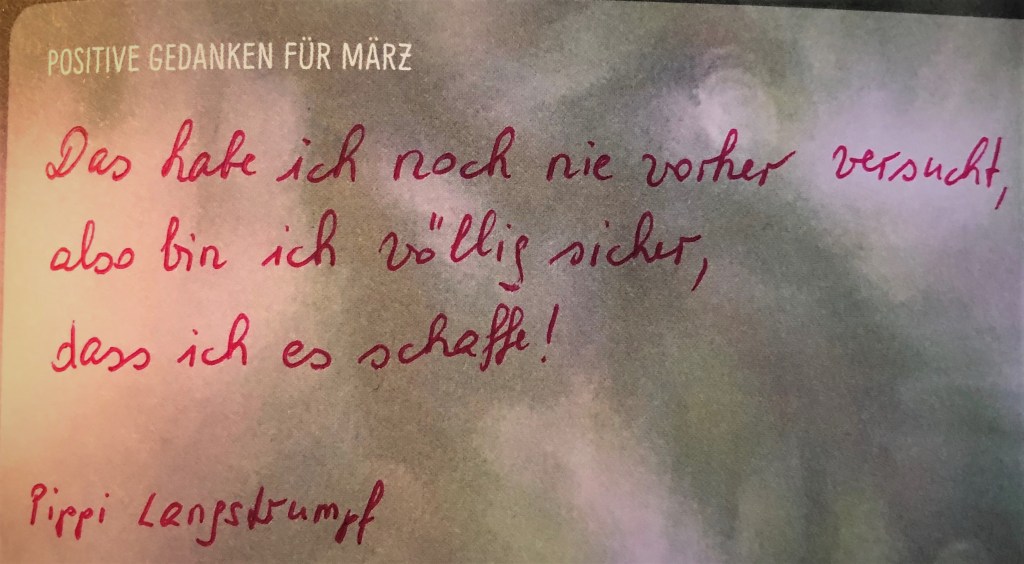 POSITIVE GEDANKEN FÜR MÄRZ
Das habe ich noch nie vorher versucht,
also bin ich völlig sicher,
dass ich es schaffe!
Pippi Langstrumpf